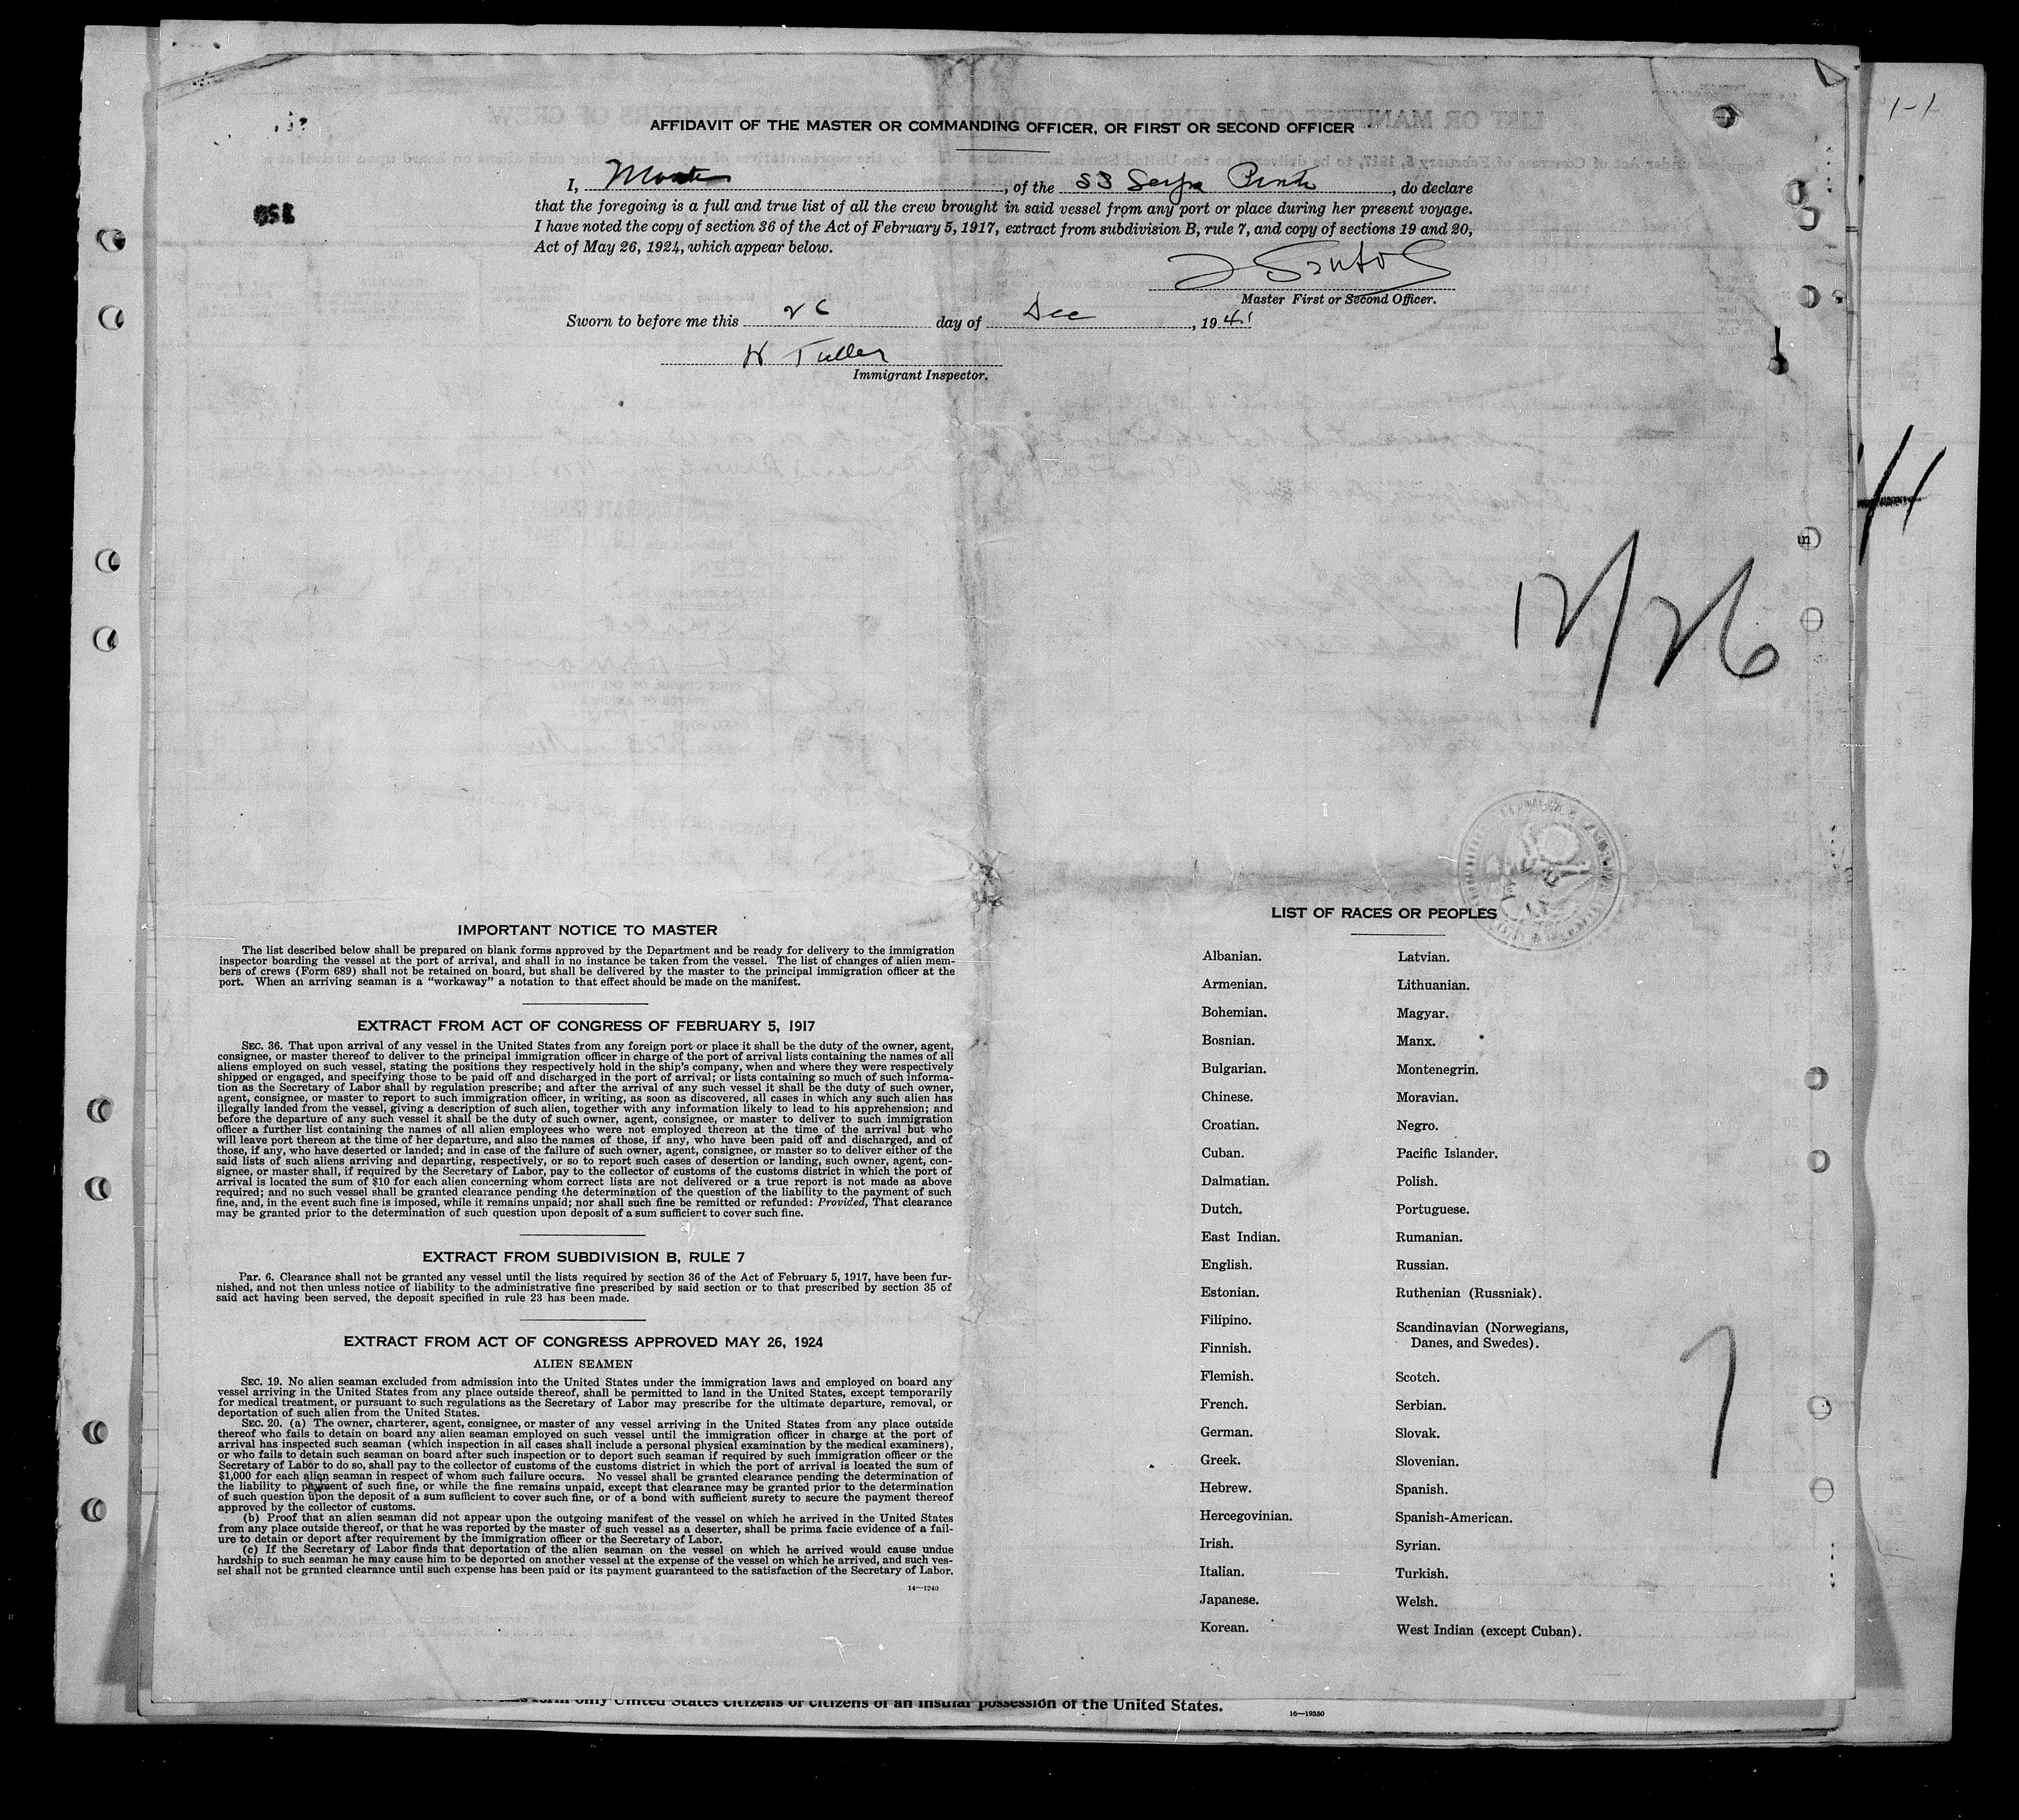 AFFIDAVIT OF THE MASTER OR COMMANDING OFFICER, OR FIRST OR SECOND OFFICER
I, Master, of the SS Serpa Pinto, do declare
that the foregoing is a full and true list of all the crew brought in said vessel from any port or place during her present voyage.
I have noted the copy of section 36 of the Act of February 5, 1917, extract from subdivision B, rule 7, and copy of sections 19 and 20,
Act of May 26, 1924, which appear below.
J Santos
Master First or Second Officer.
Sworn to before me this 26 day of Dec, 1941
H Tuller
Immigrant Inspector.
12/26
IMPORTANT NOTICE TO MASTER
The list described below shall be prepared on blank forms approved by the Department and be ready for delivery to the immigration
inspector boarding the vessel at the port of arrival, and shall in no instance be taken from the vessel. The list of changes of alien mem-
bers of crews (Form 689) shall not be retained on board, but shall be delivered by the master to the principal immigration officer at the
port. When an arriving seaman is a "workaway" a notation to that effect should be made on the manifest.
EXTRACT FROM ACT OF CONGRESS OF FEBRUARY 5, 1917
SEC. 36. That upon arrival of any vessel in the United States from any foreign port or place it shall be the duty of the owner, agent,
consignee, or master thereof to deliver to the principal immigration officer in charge of the port of arrival lists containing the names of all
aliens employed on such vessel, stating the positions they respectively hold in the ship's company, when and where they were respectively
shipped or engaged, and specifying those to be paid off and discharged in the port of arrival; or lists containing so much of such informa-
tion as the Secretary of Labor shall by regulation prescribe; and after the arrival of any such vessel it shall be the duty of such owner,
agent, consignee, or master to report to such immigration officer, in writing, as soon as discovered, all cases in which any such alien has
illegally landed from the vessel, giving a description of such alien, together with any information likely to lead to his apprehension; and
before the departure of any such vessel it shall be the duty of such owner, agent, consignee, or master to deliver to such immigration
officer a further list containing the names of all alien employees who were not employed thereon at the time of the arrival but who
will leave port thereon at the time of her departure, and also the names of those, if any, who have been paid off and discharged, and of
those, if any, who have deserted or landed; and in case of the failure of such owner, agent, consignee, or master so to deliver either of the
said lists of such aliens arriving and departing, respectively, or so to report such cases of desertion or landing, such owner, agent, con-
signee, or master shall, if required by the Secretary of Labor, pay to the collector of customs of the customs district in which the port of
arrival is located the sum of $10 for each alien concerning whom correct lists are not delivered or a true report is not made as above
required; and no such vessel shall be granted clearance pending the determination of the question of the liability to the payment of such
fine, and, in the event such fine is imposed, while it remains unpaid; nor shall such fine be remitted or refunded: Provided, That clearance
may be granted prior to the determination of such question upon deposit of a sum sufficient to cover such fine.
EXTRACT FROM SUBDIVISION B, RULE 7
Par. 6. Clearance shall not be granted any vessel until the lists required by section 36 of the Act of February 5, 1917, have been fur-
nished, and not then unless notice of liability to the administrative fine prescribed by said section or to that prescribed by section 35 of
said act having been served, the deposit specified in rule 23 has been made.
EXTRACT FROM ACT OF CONGRESS APPROVED MAY 26, 1924
ALIEN SEAMEN
SEC. 19. No alien seaman excluded from admission into the United States under the immigration laws and employed on board any
vessel arriving in the United States from any place outside thereof, shall be permitted to land in the United States, except temporarily
for medical treatment, or pursuant to such regulations as the Secretary of Labor may prescribe for the ultimate departure, removal, or
deportation of such alien from the United States.
SEC. 20. (a) The owner, charterer, agent, consignee, or master of any vessel arriving in the United States from any place outside
thereof who fails to detain on board any alien seaman employed on such vessel until the immigration officer in charge at the port of
arrival has inspected such seaman (which inspection in all cases shall include a personal physical examination by the medical examiners),
or who fails to detain such seaman on board after inspection or to deport such seaman if required by such immigration officer or the
Secretary of Labor to do so, shall pay to the collector of customs of the customs district in which the port of arrival is located the sum of
$1,000 for each alien seaman in respect of whom such failure occurs. No vessel shall be granted clearance pending the determination of
the liability to payment of such fine, or while the fine remains unpaid, except that clearance may be granted prior to the determination
of such question upon the deposit of a sum sufficient to cover such fine, or of a bond with sufficient surety to secure the payment thereof
approved by the collector of customs.
(b) Proof that an alien seaman did not appear upon the outgoing manifest of the vessel on which he arrived in the United States
from any place outside thereof, or that he was reported by the master of such vessel as a deserter, shall be prima facie evidence of a fail-
ure to detain or deport after requirement by the immigration officer or the Secretary of Labor.
(c) If the Secretary of Labor finds that deportation of the alien seaman on the vessel on which he arrived would cause undue
hardship to such seaman he may cause him to be deported on another vessel at the expense of the vessel on which he arrived, and such ves-
sel shall not be granted clearance until such expense has been paid or its payment guaranteed to the satisfaction of the Secretary of Labor.
14—1240
LIST OF RACES OR PEOPLES
Albanian.
Armenian.
Bohemian.
Bosnian.
Bulgarian.
Chinese.
Croatian.
Cuban.
Dalmatian.
Dutch.
East Indian.
English.
Estonian.
Filipino.
Finnish.
Flemish.
French.
German.
Greek.
Hebrew.
Hercegovinian.
Irish.
Italian.
Japanese.
Korean.
Latvian.
Lithuanian.
Magyar.
Manx.
Montenegrin.
Moravian.
Negro.
Pacific Islander.
Polish.
Portuguese.
Rumanian.
Russian.
Ruthenian (Russniak).
Scandinavian (Norwegians,
Danes, and Swedes).
Scotch.
Serbian.
Slovak.
Slovenian.
Spanish.
Spanish-American.
Syrian.
Turkish.
Welsh.
West Indian (except Cuban).
only United States citizens or citizens of an insular possession of the United States.
16—19350